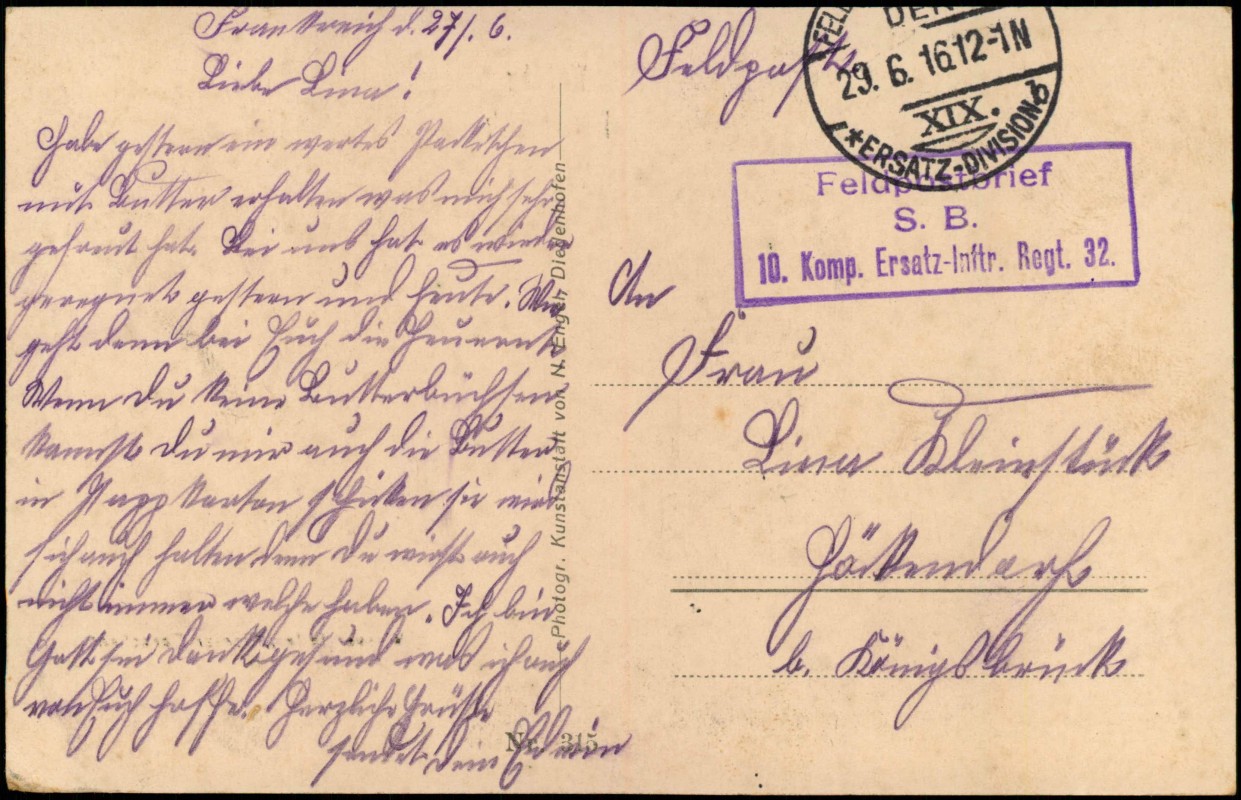 Frankreich d. 27/. 6.
Liebe Lina!
Habe gestern ein wertes Packetchen
mit Butter erhalten was mich sehr
gefreut hat. Bei uns hat es wieder
geregnet gestern und heute. Wie
geht denn bei Euch die Heuernte
Wenn Du keine Butterbüchsen
kannst Du mir auch die Butter
in Pappkarton schicken sie wird
sich auch halten denn Du wirst auch
nicht immer welche haben. Ich bin
Gott sei dank gesund was ich auch
von Euch hoffe. Herzliche Grüße
sendet dein Edwin
Photogr. Kunstanstalt von N. Engel, Diedenhofen
Nr. 315
Feldpost
FELD DER
29. 6. 16 12-1N
XIX.
* ERSATZ-DIVISION
Feldpostbrief
S. B.
10. Komp. Ersatz-Inftr. Regt. 32.
An
Frau
Lina Kleinstück
Höckendorf
b. Königsbrück